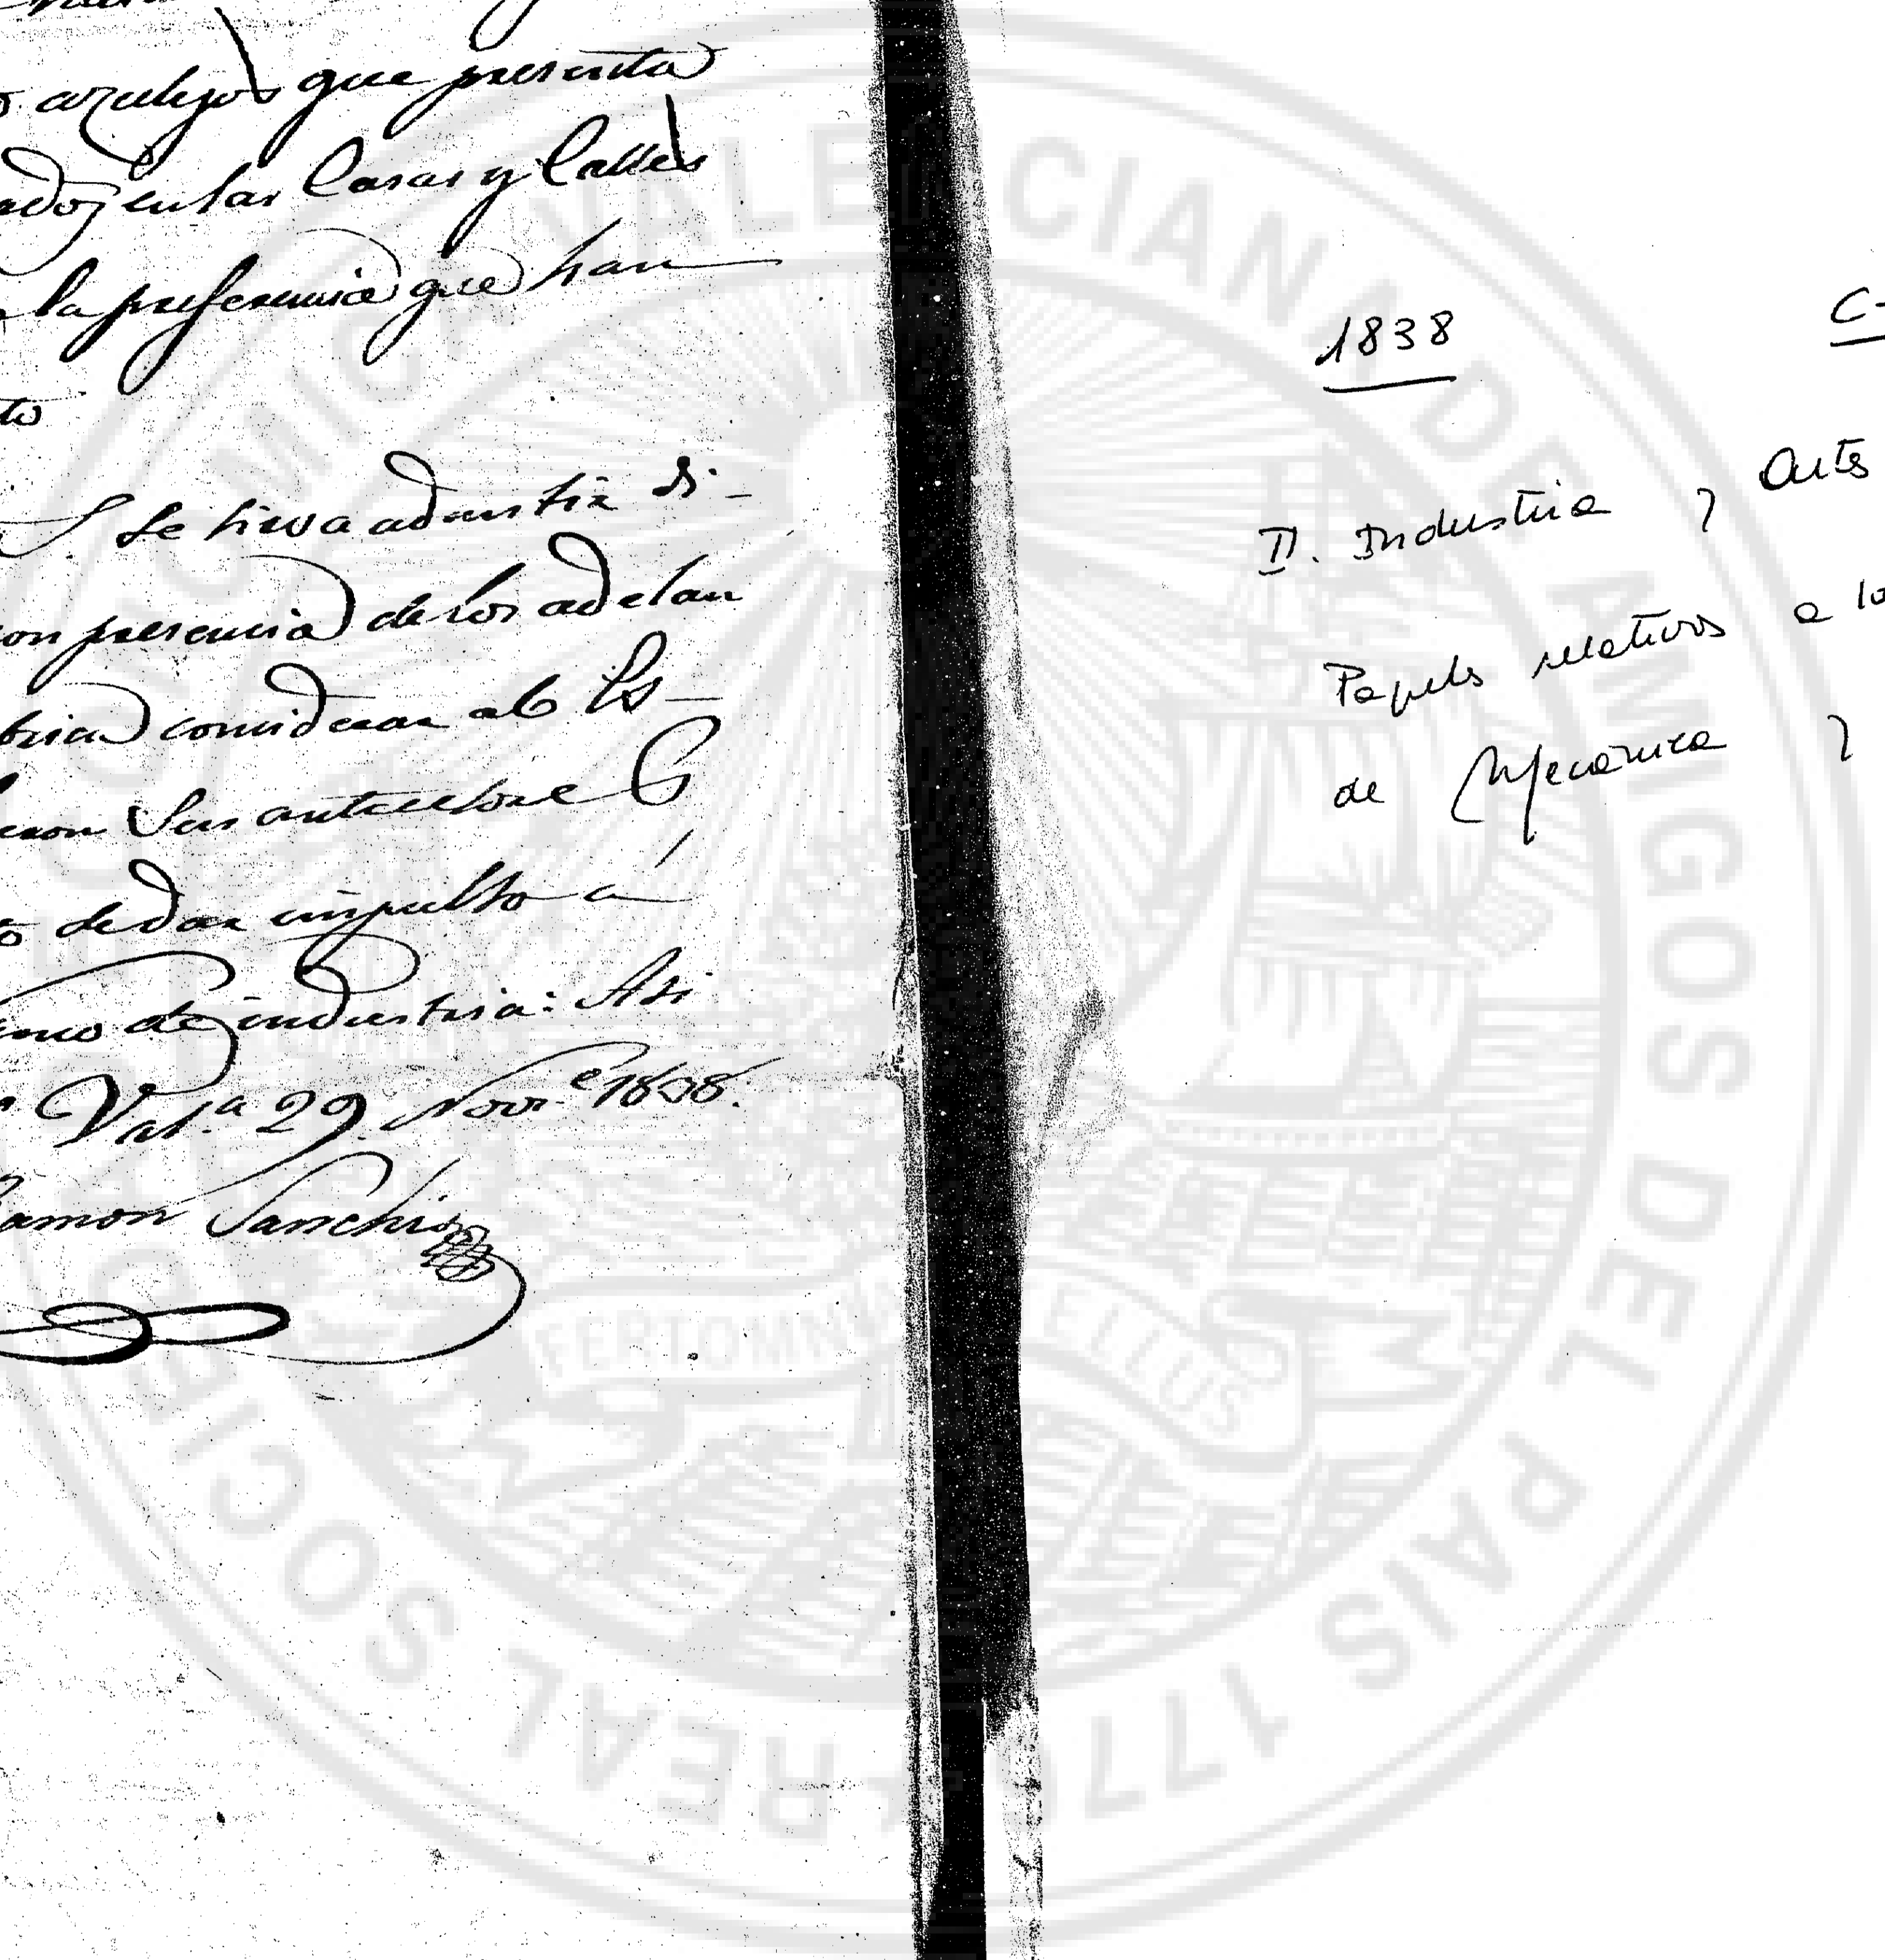 azulejos que presenta
ados en las Casas y Calles
la preferencia que han
to
S. Se sirva admitir di-
on presencia de los adelan
brica considerar al Es-
eron Sus antecesore
de dar impulso a
amo de industria: Asi
Val.ª 29. Nov.e 1838.
Ramon Sanchis
1838
C-
II. Industria y Artes
Papeles relativos a lo
de Mecánica y
REAL SOCIEDAD ECONOMICA VALENCIANA DE AMIGOS DEL PAIS 1776